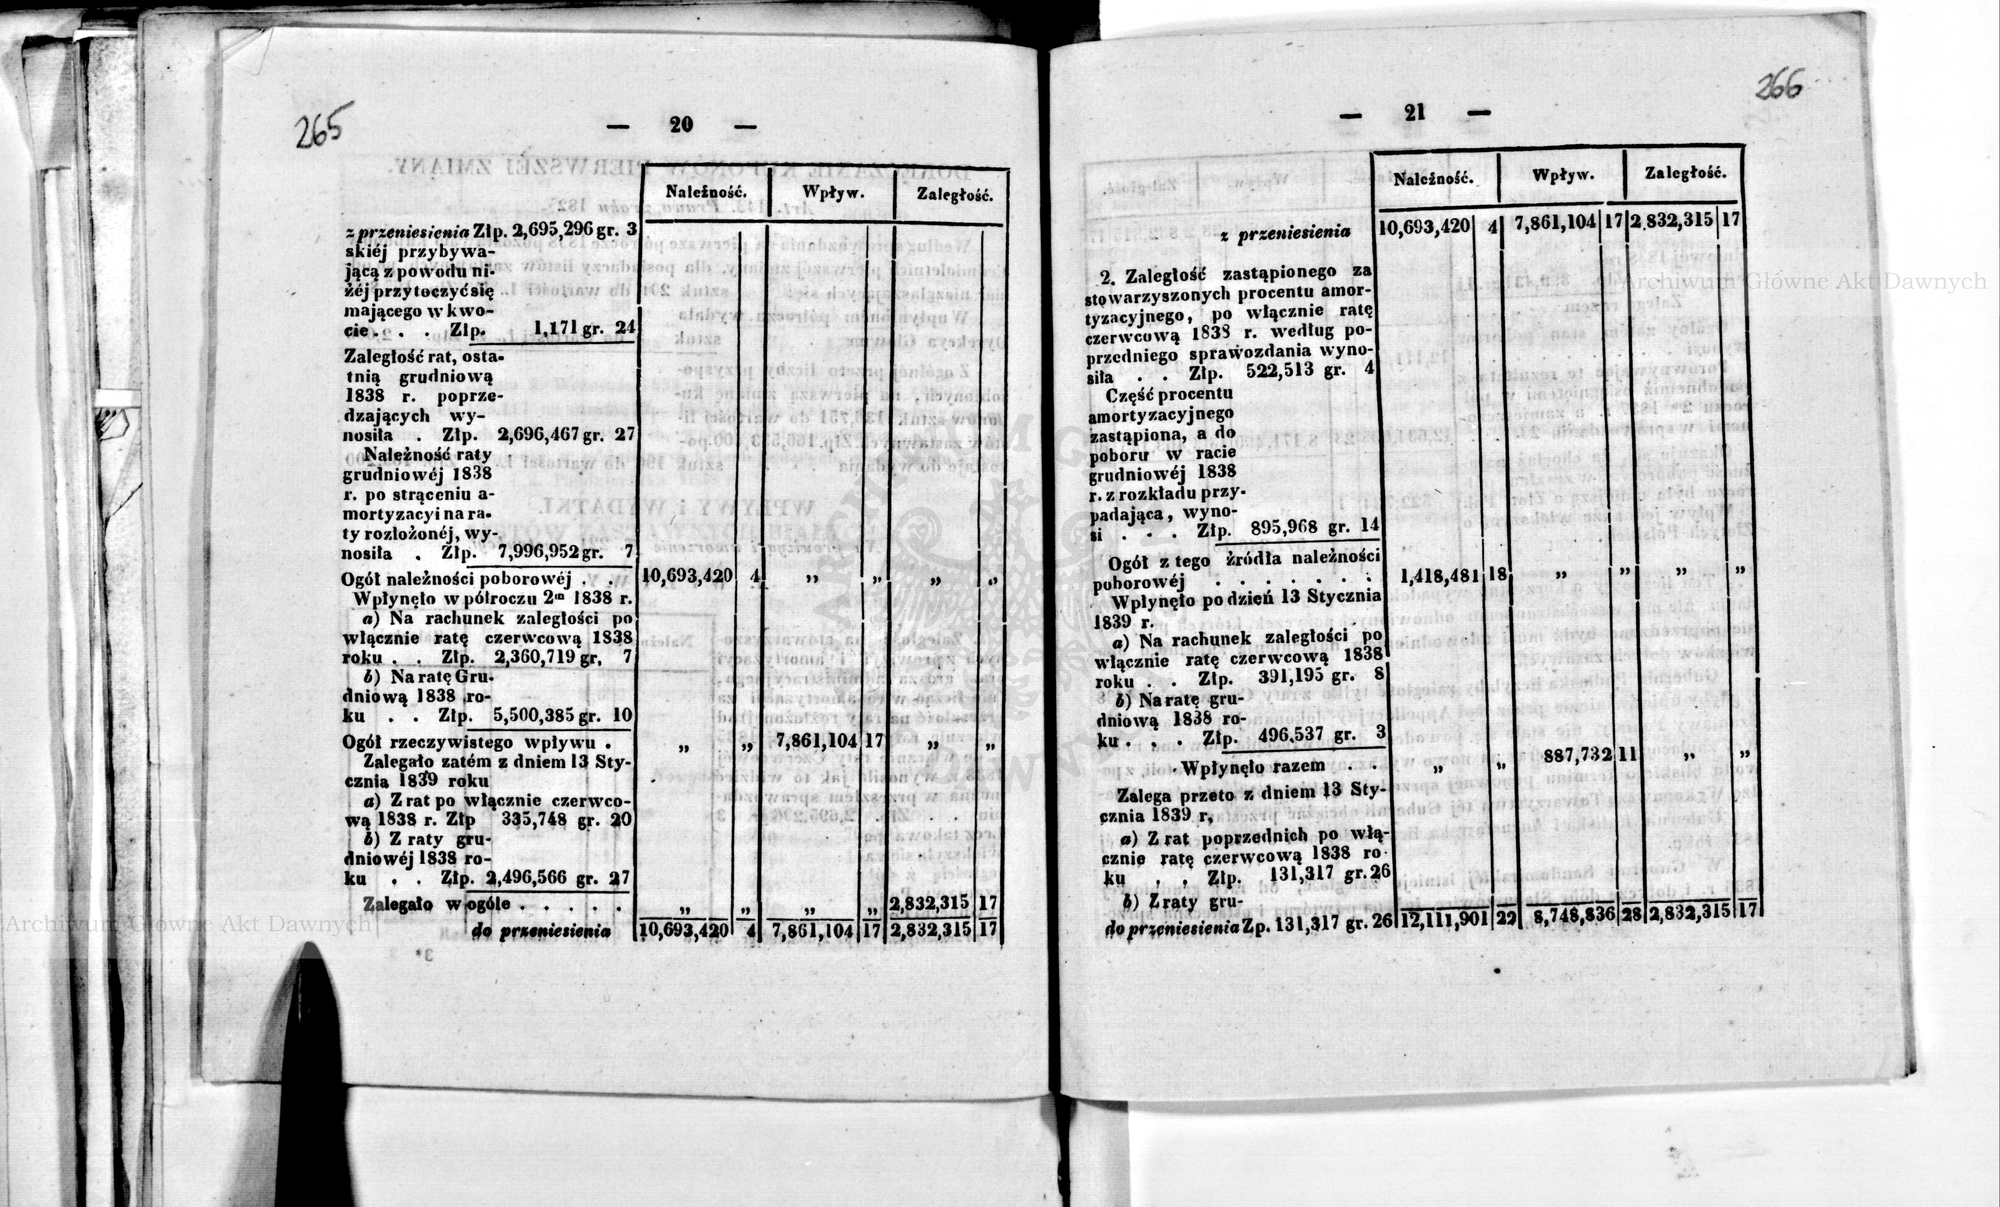 265
— 20 —
Należność. Wpływ. Zaległość.
z przeniesienia Złp. 2,695,296 gr. 3
skiéj przybywa-
jącą z powodu ni-
żéj przytoczyć się
mającego w kwo-
cie . . . Złp. 1,171 gr. 24
Zaległość rat, osta-
tnią grudniową
1838 r. poprze-
dzających wy-
nosiła . Złp. 2,696,467 gr. 27
Należność raty
grudniowéj 1838
r. po strąceniu a-
mortyzacyi na ra-
ty rozłożonéj, wy-
nosiła . Złp. 7,996,952 gr. 7
Ogół należności poborowéj . . 10,693,420 4 „ „ „ „
Wpłynęło w półroczu 2m 1838 r.
a) Na rachunek zaległości po
włącznie ratę czerwcową 1838
roku . . Złp. 2,360,719 gr. 7
b) Na ratę Gru-
dniową 1838 ro-
ku . . Złp. 5,500,385 gr. 10
Ogół rzeczywistego wpływu . „ „ 7,861,104 17 „ „
Zalegało zatém z dniem 13 Sty-
cznia 1839 roku
a) Z rat po włącznie czerwco-
wą 1838 r. Złp 335,748 gr. 20
b) Z raty gru-
dniowéj 1838 ro-
ku . . Złp. 2,496,566 gr. 27
Zalegało w ogóle . . . . . „ „ „ „ 2,832,315 17
do przeniesienia 10,693,420 4 7,861,104 17 2,832,315 17
3*
266
— 21 —
Należność. Wpływ. Zaległość.
z przeniesienia 10,693,420 4 7,861,104 17 2,832,315 17
2. Zaległość zastąpionego za
stowarzyszonych procentu amor-
tyzacyjnego, po włącznie ratę
czerwcową 1838 r. według po-
przedniego sprawozdania wyno-
siła . . Złp. 522,513 gr. 4
Część procentu
amortyzacyjnego
zastąpiona, a do
poboru w racie
grudniowéj 1838
r. z rozkładu przy-
padająca, wyno-
si . . . Złp. 895,968 gr. 14
Ogół z tego źródła należności
poborowéj . . . . . . . 1,418,481 18 „ „ „ „
Wpłynęło po dzień 13 Stycznia
1839 r.
a) Na rachunek zaległości po
włącznie ratę czerwcową 1838
roku . . Złp. 391,195 gr. 8
b) Na ratę gru-
dniową 1838 ro-
ku . . . Złp. 496,537 gr. 3
Wpłynęło razem . . „ „ 887,732 11 „ „
Zalega przeto z dniem 13 Sty-
cznia 1839 r,
a) Z rat poprzednich po włą-
cznie ratę czerwcową 1838 ro-
ku . , Złp. 131,317 gr. 26
b) Z raty gru-
do przeniesienia Zp. 131,317 gr. 26 12,111,901 22 8,748,836 28 2,832,315 17
Archiwum Główne Akt Dawnych
Archiwum Główne Akt Dawnych